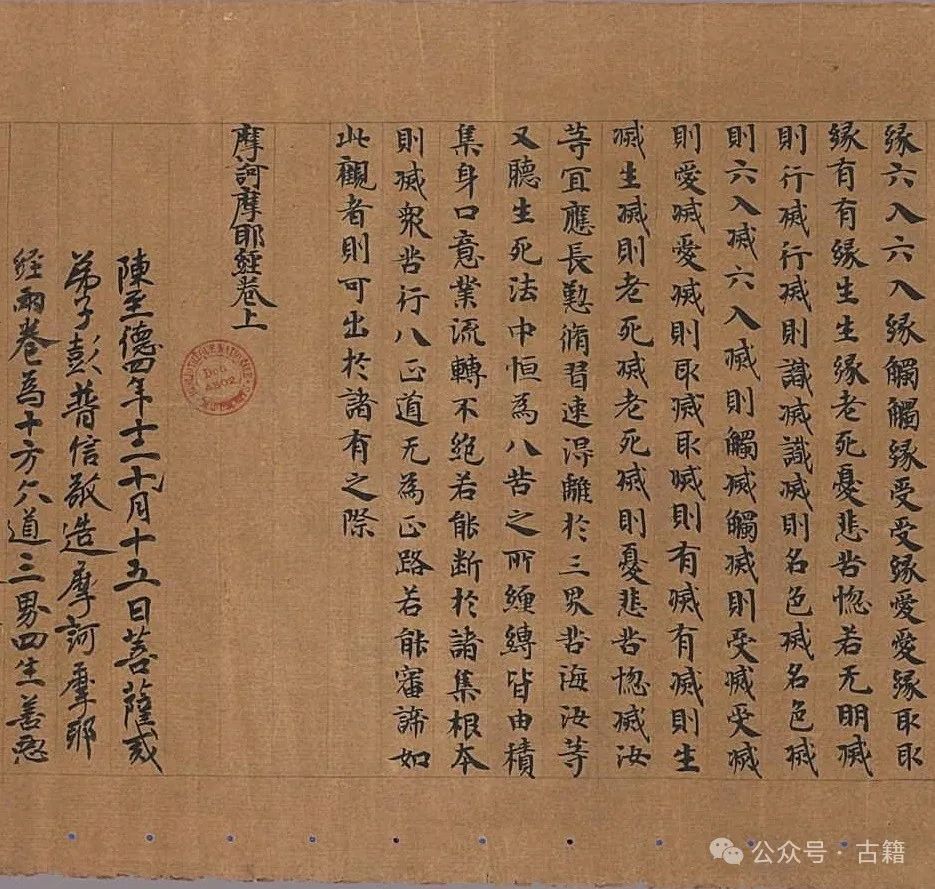 緣六入六入緣觸觸緣受受緣愛愛緣取取
緣有有緣生生緣老死憂悲苦惚若无明滅
則行滅行滅則識滅識滅則名色滅名色滅
則六入滅六入滅則觸滅觸滅則受滅受滅
則愛滅愛滅則取滅取滅則有滅有滅則生
滅生滅則老死滅老死滅則憂悲苦惚滅汝
等宜應長懃脩習速得離於三界苦海汝等
又聽生死法中恒為八苦之所纏縛皆由積
集身口意業流轉不絕若能断於諸集根本
則滅衆苦行八正道无為正路若能審諦如
此觀者則可出於諸有之際
摩訶摩耶經卷上
陳至德四年十二月十五日菩薩戒
弟子彭普信敬造摩訶摩耶
經兩卷為十方六道三界四生善惡
公众号·古籍